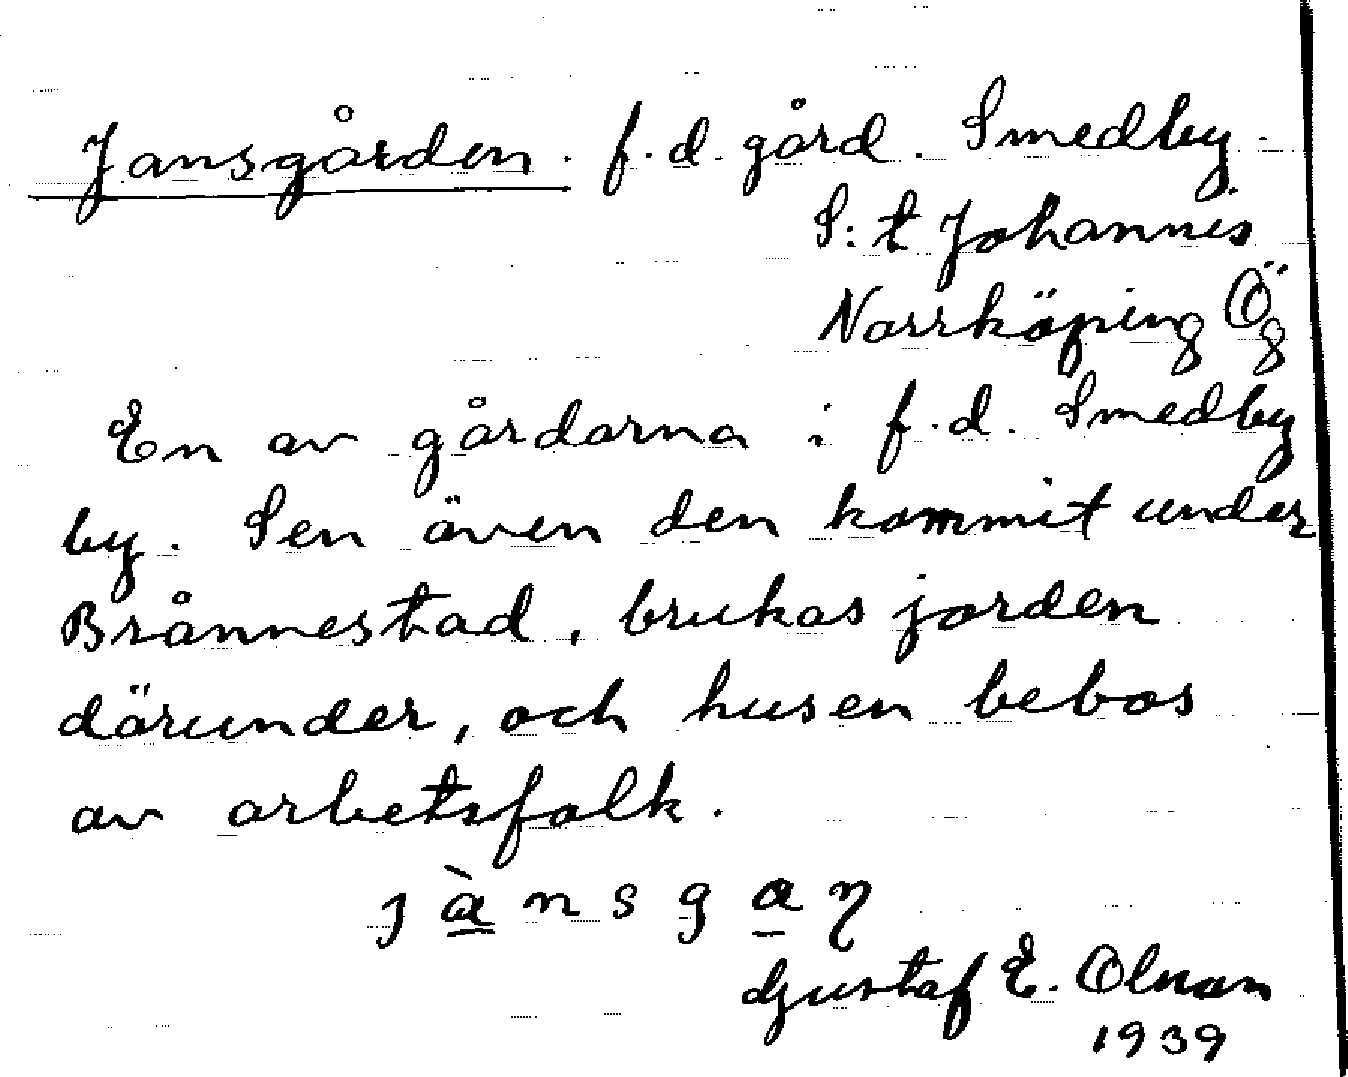 Jansgården. f.d. gård. Smedby.
S:t Johannis
Norrköping Ög
En av gårdarna i f.d. Smedby
by. Sen även den kommit under
Brånnestad, brukas jorden
därunder, och husen bebos
av arbetsfolk.
Gustaf E.
1939